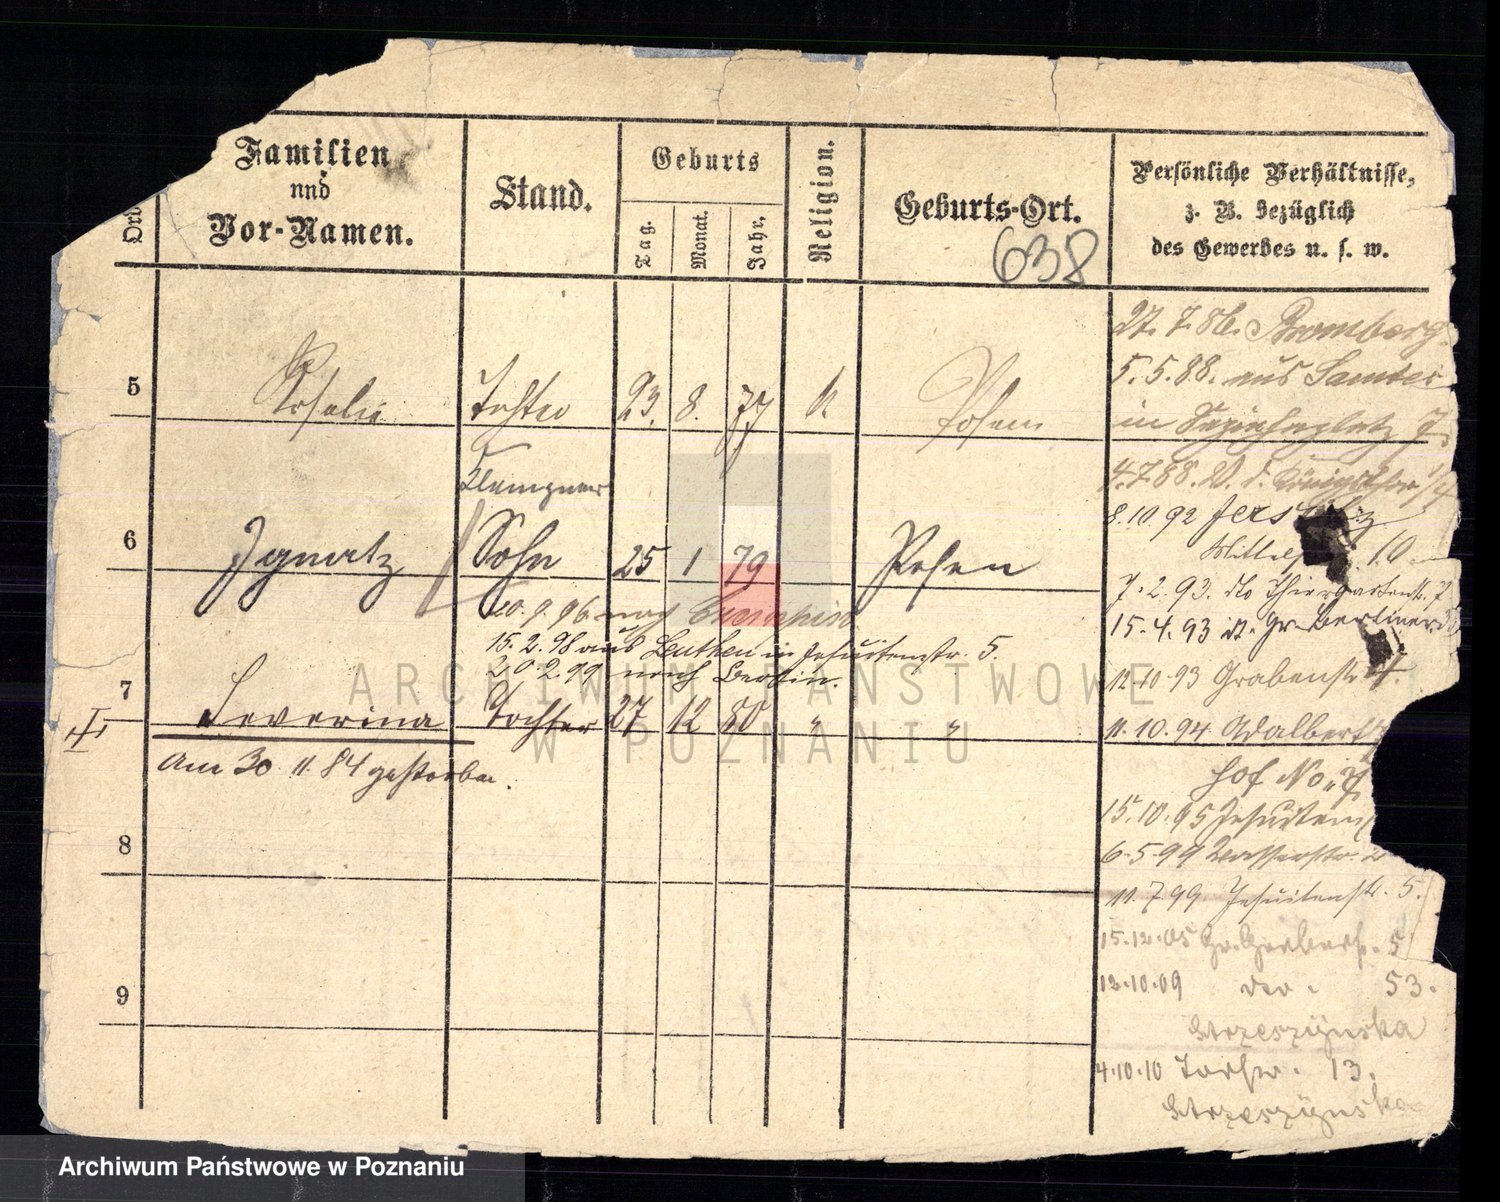 Ord
Familien
und
Vor-Namen.
Stand.
Geburts
Tag.
Monat.
Jahr.
Religion.
Geburts-Ort.
638
Persönliche Verhältnisse,
z. B. bezüglich
des Gewerbes u. s. w.
27. 7. 86. Bromberg
5. 5. 88. aus Samter
5 Rosalie Tochter 23. 8. 77 k Posen
in Sapiehaplatz 7.
Klempner
4. 7. 88. V. d. Königsthor
8. 10 92 Jers
6 Ignatz Sohn 25 1 79 Posen
10
7. 2. 93. do Thiergartenstr.
20. 9. 96 nach
15. 4. 93 Gr. Berliner
15. 2. 98 aus Beuthen in Jesuitenstr. 5.
20 2. 99 nach Berlin.
12. 10. 93 Grabenstr.
7 Severina Tochter 27 12 80 " "
11. 10. 94 Adalbert
Am 30 11. 84 gestorben.
hof No
15. 10. 95 Jesuiten
8
6. 5. 99 Wasserstr.
11. 7. 99 Jesuitenstr. 5.
15. 12. 05 Gr. Gerberstr. 5
9
12. 10. 09 53.
Strzeszynska
4. 10. 10 13.
Strzeszynska
ARCHIWUM PAŃSTWOWE
W POZNANIU
Archiwum Państwowe w Poznaniu